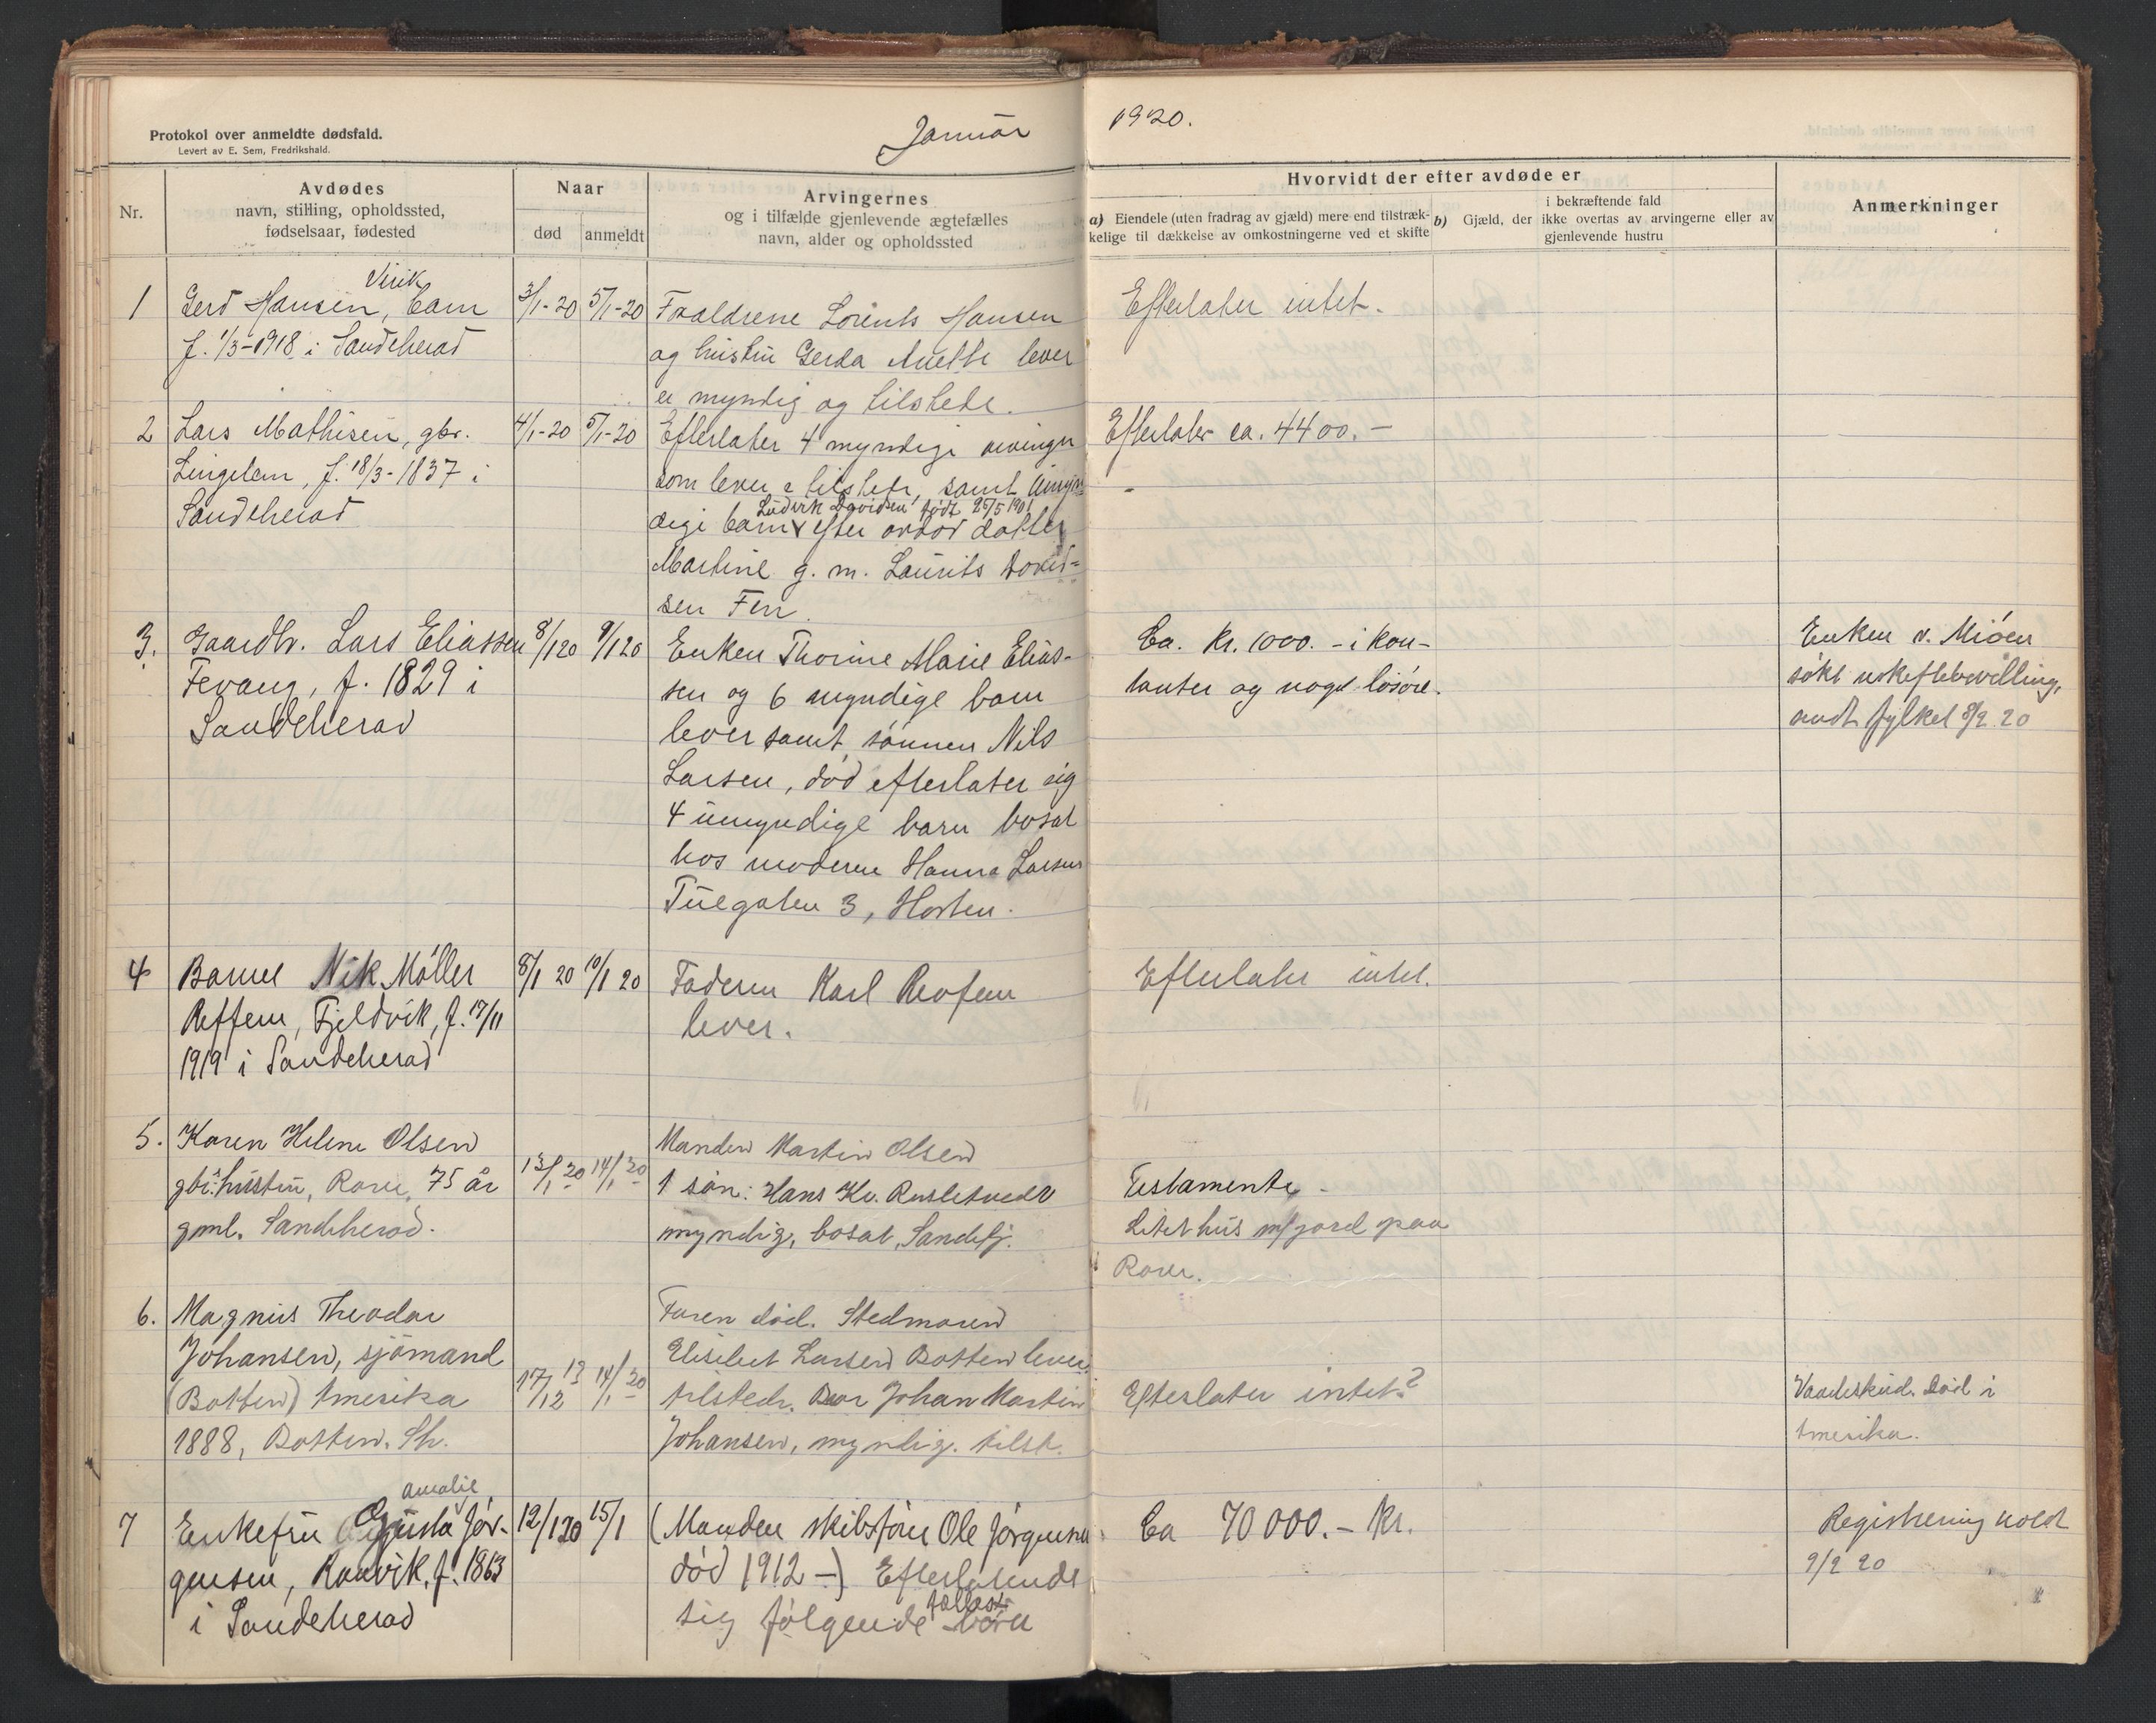 Protokol over anmeldte dødsfald.
Levert av E. Sem, Fredrikshald.
Januar
1920.
Nr.
Avdødes
navn, stilling, opholdssted,
fødselsaar, fødested
Naar
død
anmeldt
Arvingernes
og i tilfælde gjenlevende ægtefælles
navn, alder og opholdssted
Hvorvidt der efter avdøde er
a) Eiendele (uten fradrag av gjæld) mere end tilstræk-
kelige til dækkelse av omkostningerne ved et skifte
b) Gjæld, der
i bekræftende fald
ikke overtas av arvingerne eller av
gjenlevende hustru
Anmerkninger
1
Virik
Gerd Hansen, barn
f. 1/3-1918 i Sandeherad
3/1-20
5/1-20
Forældrene Lorents Hansen
og hustru Gerda Anette lever
er myndig og tilstede.
Efterlater intet.
2
Lars Mathisen, gbr.
Lingelem, f. 18/3-1837 i
Sandeherad
4/1-20
5/1-20
Efterlater 4 myndige arvinger
som lever e tilstede, samt umyn=
Ludvik Davidsen født 25/5 1901
dige barn efter avdød datter
Martine g. m. Laurits David=
sen Fen.
Efterlater ca. 4400.-
3.
Gaardbr. Lars Eliassen
Fevang, f. 1829 i
Sandeherad
8/1 20
9/1 20
Enken Thorine Marie Elias-
sen og 6 myndige barn
lever samt sønnen Nils
Larsen, død efterlater sig
4 umyndige barn bosat
hos moderen Hanna Larsen
Tuegaten 3, Horten.
Ca. Kr. 1000.- i kon-
tanter og noget løsøre.
Enken v. Miøen
søkt uskiftebevilling,
fylket 8/2 20
4
Barnet Nik Møller
Reffem, Fjeldvik, f. 17/11
1919 i Sandeherad
8/1 20
10/1 20
Faderen Karl
lever.
Efterlater intet.
5.
Karen Helene Olsen
gbr. hustru, Rove, 75 år
gml. Sandeherad.
13/1 20
14/1 20
Manden Martin Olsen
1 søn: Hans Kr.
myndig, bosat, Sandefj.
Testamente.
Litet hus m/ jord paa
Rove.
6.
Magnus Theodor
Johansen, sjømand
(Botten) Amerika
1888, Botten. Sh.
17/12
14/1 20
Faren død. Stedmoren
Elisebet Larsen Botten lever
tilstede. Bror Johan Martin
Johansen, myndig. tilst.
Efterlater intet?
Vaadeskud. Død i
Amerika.
7
Amalie
Enkefru Gusta Jør-
gensen, Ranvik, f. 1863
i Sandeherad
12/1 20
15/1
(Manden skibsfører Ole Jørgensen
død 1912-) Efterlatende
fælles
sig følgende børn
Ca 70 000.- Kr.
Registrering holdt
9/2 20